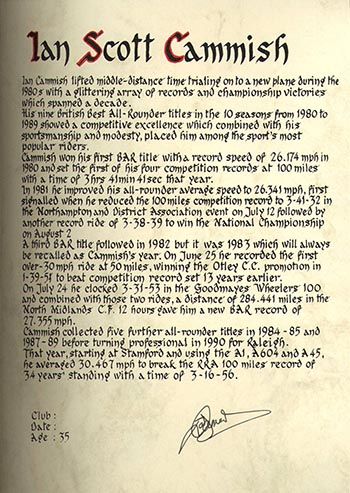 Ian Scott Cammish
Ian Cammish lifted middle-distance time trialing on to a new plane during the
1980s with a glittering array of records and championship victories
which spanned a decade.
His nine British Best All-Rounder titles in the 10 seasons from 1980 to
1989 showed a competitive excellence which combined with his
sportsmanship and modesty, placed him among the sport's most
popular riders.
Cammish won his first BAR title with a record speed of 26.174 mph in
1980 and set the first of his four competition records at 100 miles
with a time of 3hrs 41min 41sec that year.
In 1981 he improved his all-rounder average speed to 26.341 mph, first
signalled when he reduced the 100 miles competition record to 3-41-32 in
the Northampton and District Association event on July 12 followed by
another record ride of 3-38-39 to win the National Championship
on August 2
A third BAR title followed in 1982 but it was 1983 which will always
be recalled as Cammish's year. On June 25 he recorded the first
over-30 mph ride at 50 miles, winning the Otley C.C. promotion in
1-39-51 to beat competition record set 13 years earlier.
On July 24 he clocked 3-31-53 in the Goodmayes Wheelers 100
and combined with those two rides, a distance of 284.441 miles in the
North Midlands C.F. 12 hours gave him a new BAR record of
27.355 mph.
Cammish collected five further all-rounder titles in 1984-85 and
1987-89 before turning professional in 1990 for Raleigh.
That year, starting at Stamford and using the A1, A604 and A45,
he averaged 30.467 mph to break the RRA 100 miles record of
34 years' standing with a time of 3-16-56.
Club :
Date :
Age : 35